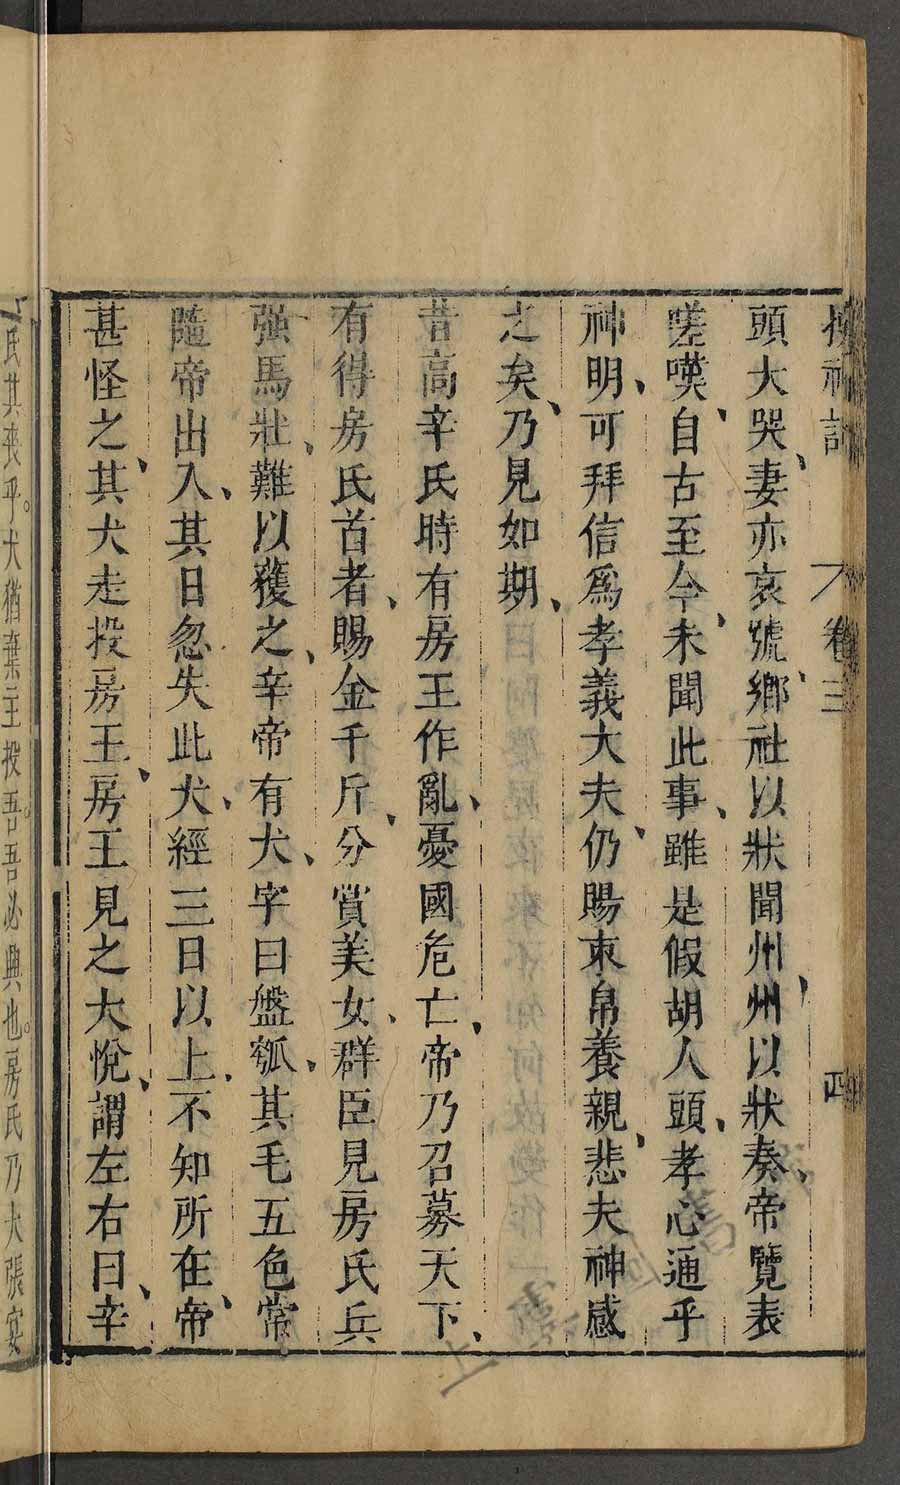 搜神記 卷三 四
頭大哭、妻亦哀號、鄉社以狀聞州、州以狀奏、帝覽表
嗟嘆、自古至今、未聞此事、雖是假胡人頭、孝心通乎
神明、可拜信爲孝義大夫、仍賜束帛養親、悲夫神感
之矣、乃見如期、
昔高辛氏時有房王作亂、憂國危亡、帝乃召募天下、
有得房氏首者、賜金千斤、分賞美女、群臣見房氏兵
强馬壯、難以獲之、辛帝有犬、字曰盤瓠、其毛五色常
隨帝出入、其日忽失此犬、經三日以上、不知所在、帝
甚怪之、其犬走投房王、房王見之大悅、謂左右曰、辛
氏其喪乎。犬猶棄主投吾。吾必興也。房氏乃大張宴